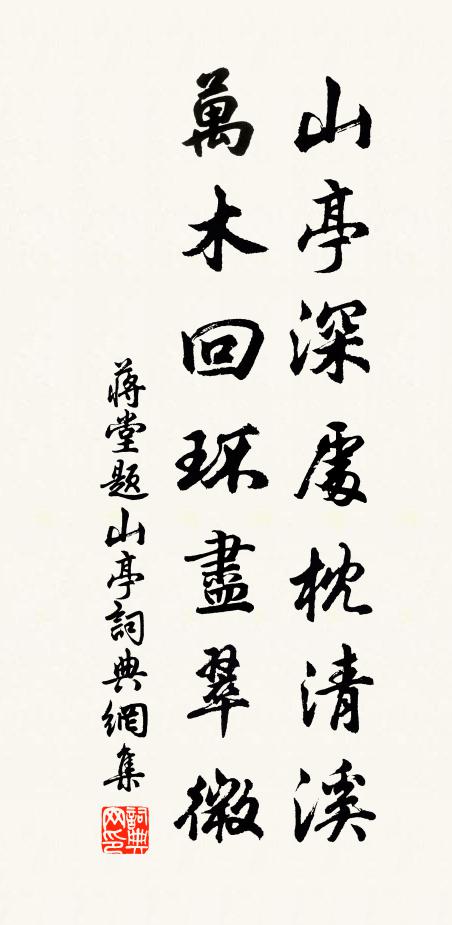 山亭深處枕清溪
萬木回环盡翠微
蔣堂题山亭詞典網集
詞典网印